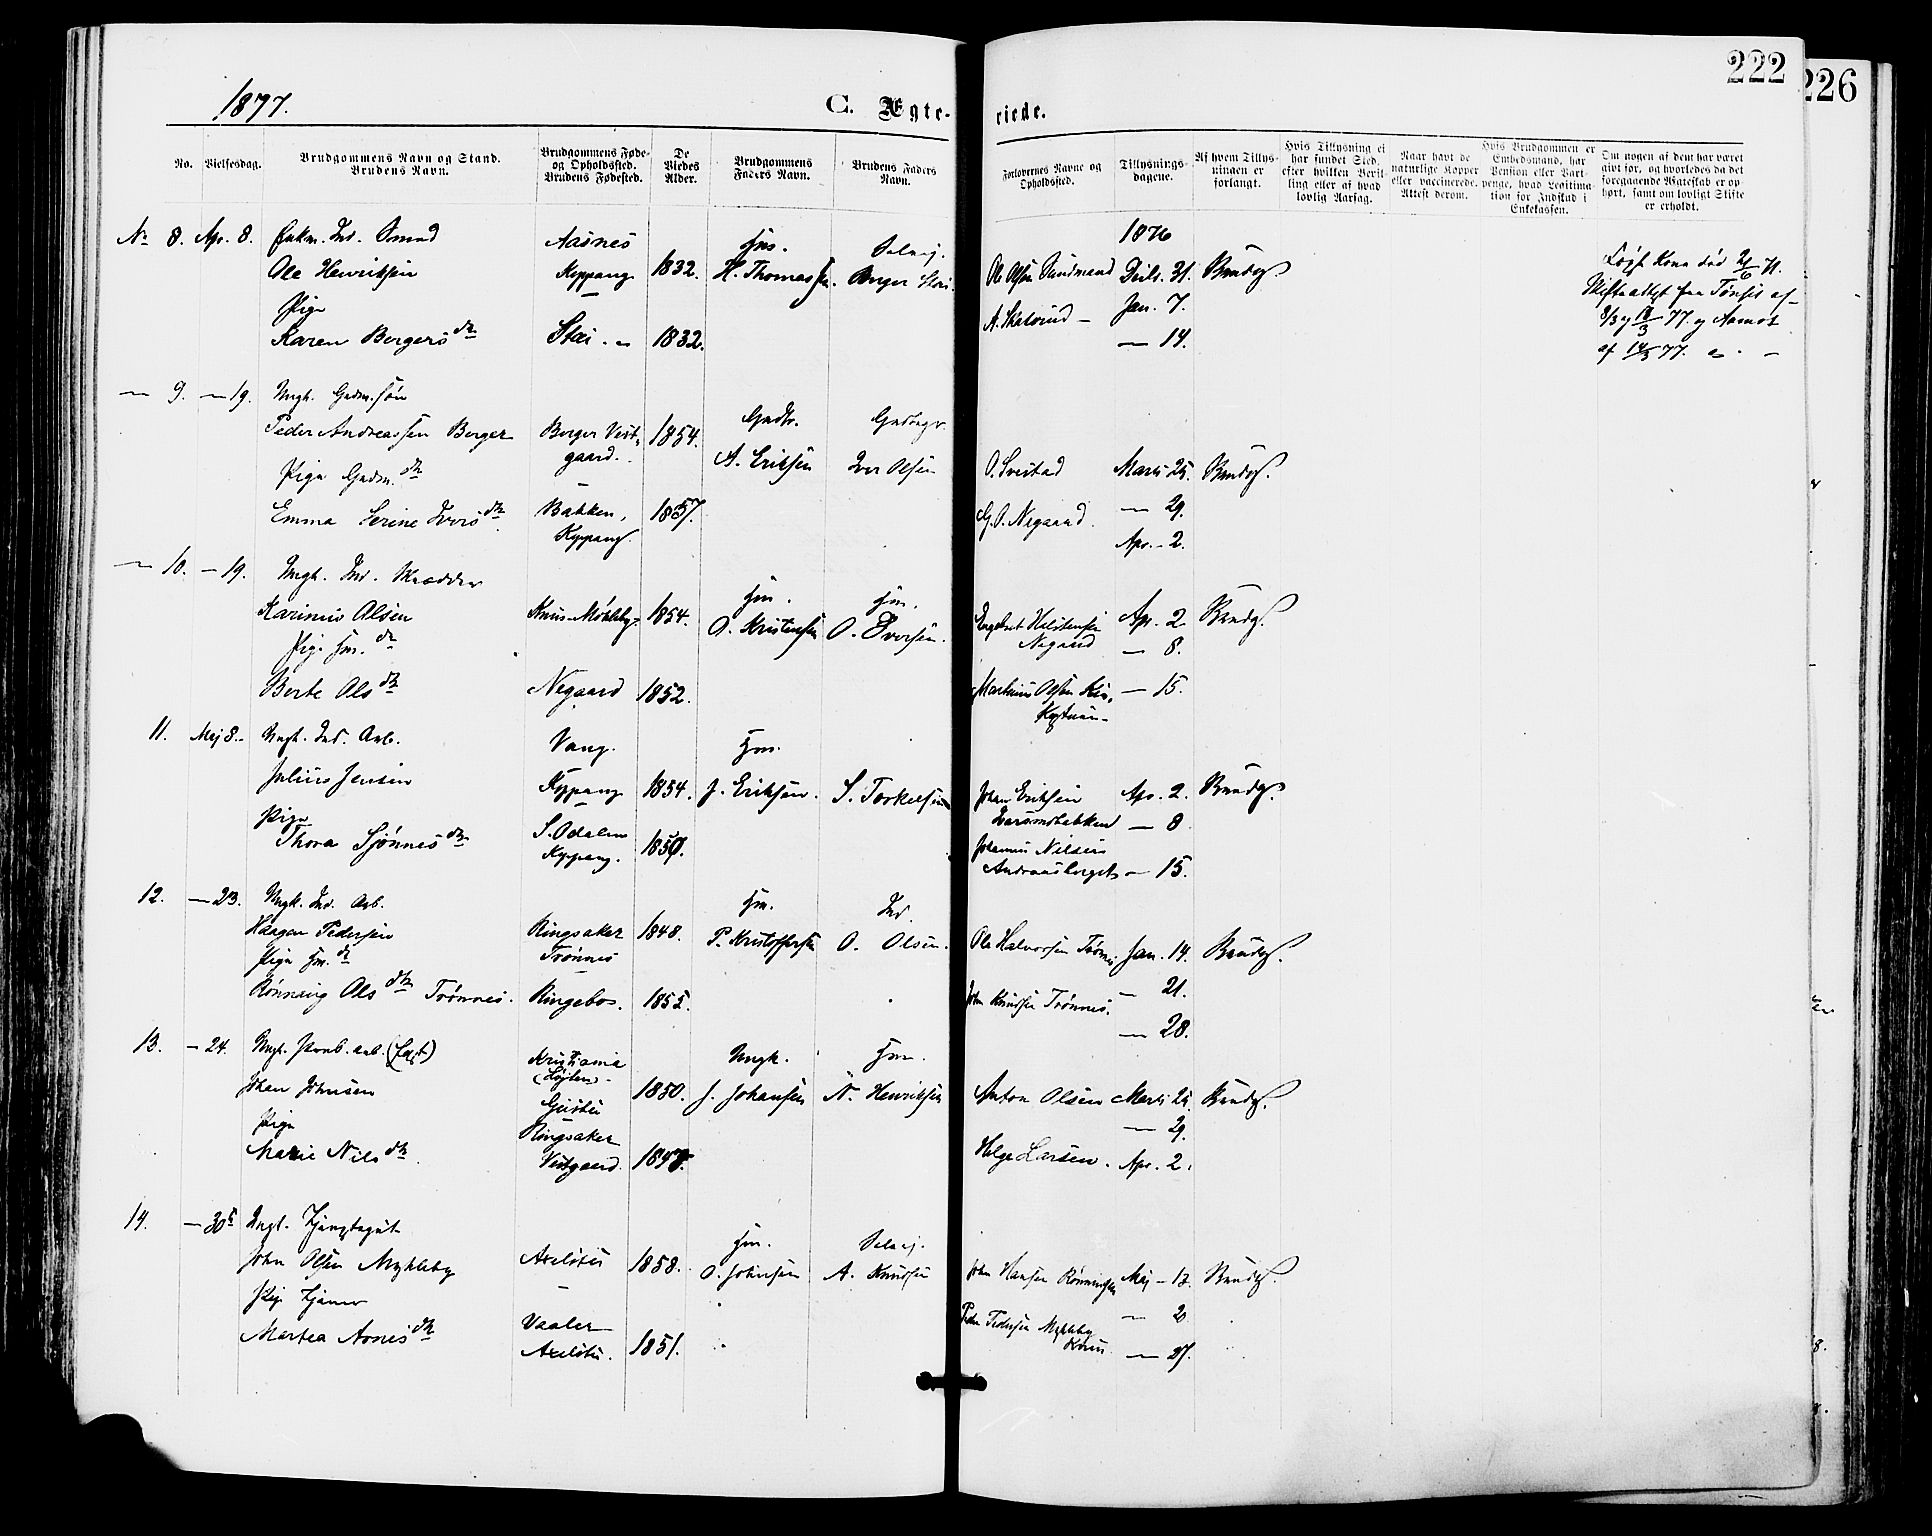 222
226
1877.
C. Ægte-
viede.
No.
Vielsesdag.
Brudgommens Navn og Stand.
Brudens Navn.
Brudgommens Føde-
og Opholdssted.
Brudens Fødested.
De
Viedes
Alder.
Brudgommens
Faders Navn.
Brudens Faders
Navn.
Forlovernes Navne og
Opholdssted.
Tillysnings-
dagene.
Af hvem Tillys-
ningen er
forlangt.
Hvis Tillysning ei
har fundet Sted,
efter hvilken Bevil-
ling eller af hvad
lovlig Aarsag.
Naar havt de
naturlige Kopper
eller vaccinerede.
Attest derom.
Hvis Brudgommen er
Embedsmand, har
Pension eller Vart-
penge, hvad Legitima-
tion for Indskud i
Enkekassen.
Om nogen af dem har været
givt før, og hvorledes da det
foregaaende Ægteskab er op-
hørt, samt om lovligt Skifte
er erholdt.
No 8. Apr. 8. Enkm. Ind. Smed
Ole Henriksen
Pige
Karen Bergersdtr
Aasnes
Koppang
Stai
1832.
1832.
H. Thomassen
Selvej.
Berger Stai.
Ole Olsen Sandmand
A. Skatvind
1876
Decbr. 31.
Jan. 7.
— 14.
Brudg.
Kone død 21/6 71.
Skifteattest fra Tønset af
8/3 og 13/3 77. og Aamot
af 14/3 77.
— 9. — 19. Ungk. Gadm. søn
Peder Andreassen Berger
Pige Gadm. dtr
Emma Serine Iversdtr
Berger Vest-
gaard.
Bakken,
Koppang.
1854.
1857.
Gadbr.
A. Eriksen
Iver Olsen
O. Svestad
G. O. Negaard.
Marts 25.
— 29.
Apr. 2.
Brudg.
— 10. — 19. Ungk. Ind. Skrædder
Karinus Olsen
Pige Hm. dtr
Berte Olsdtr
Negaard
1854.
1852.
Hm.
O. Kristensen
Hm.
O. Iversen.
Negaard
Martinus Olsen
Apr. 2
— 8.
— 15.
Brudg.
11. Maj 8. Ungk. Ind. Arb.
Julius Jensen
Pige
Thora Sjønnesdtr
Vang.
Koppang
S. Odalen
Koppang.
1854.
1850.
Hm.
J. Eriksen.
S. Torkelsen
Johan Eriksen
Johannes Nilsen
Andreasberget
Apr. 2.
— 8
— 15.
Brudg.
12. — 23. Ungk. Ind. Arb.
Haagen Pedersen
Pige Hm. dtr
Rønnaug Olsdtr Trønnes.
Ringsaker
Trønnes
Ringebo.
1848.
1855.
Hm.
P. Kristoffersen
Ind.
O. Olsen.
Ole Halvorsen Trønnes
John Knudsen Trønnes.
Jan. 14.
— 21.
— 28.
Brudg.
13. — 24. Ungk. Jernb. arb. (Fast)
Johan Johnsen
Pige
Marie Nilsdtr
Kristiania
(Løjten)
Ringsaker
Vestgaard.
1850.
1847.
Ungk.
J. Johansen
Hm.
N. Henriksen
Anton Olsen
Helge Larsen.
Marts 25.
— 29.
Apr. 2.
Brudg.
14. — 30te Ungk. Tjenestegut
John Olsen Myhleby
Pige Tjener
Martea Arnesdtr
Vaaler
1858.
1851.
Hm.
O. Johnsen
Selvej.
A. Knudsen
John Hansen Rønningen
Peder Pedersen Myhleby
Maj — 13.
— 20
— 27.
Brudg.